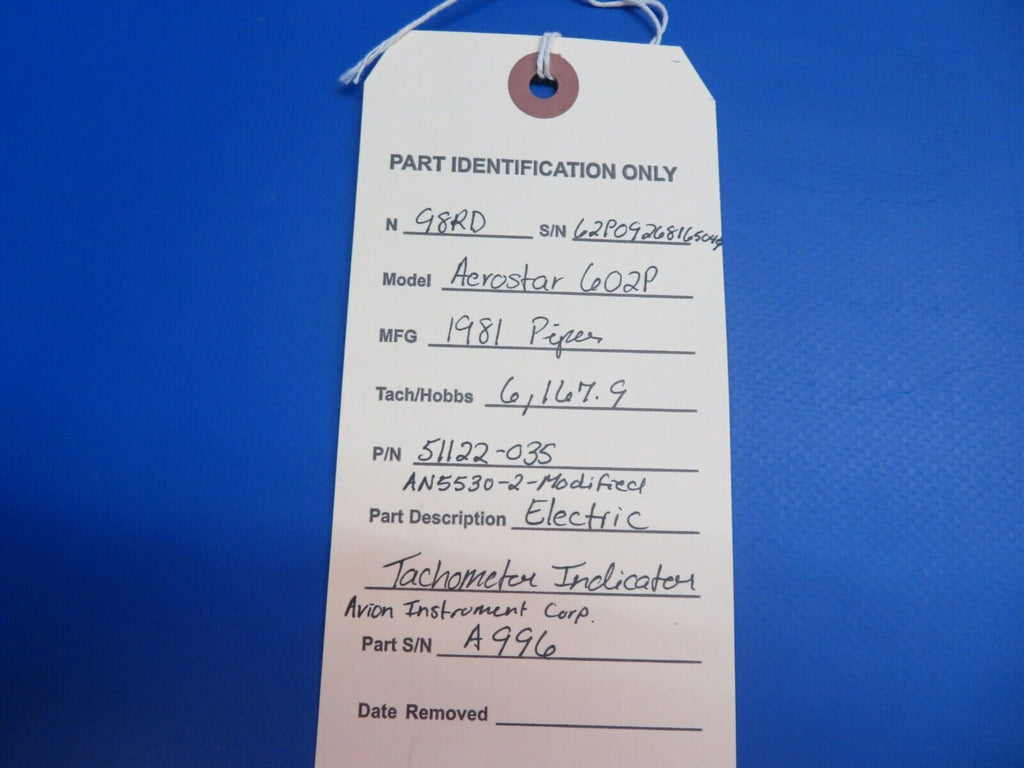 PART IDENTIFICATION ONLY
N 98RD S/N 62P09268165049
Model Aerostar 602P
MFG 1981 Piper
Tach/Hobbs 6,167.9
P/N 51122-035
AN5530-2-Modified
Part Description Electric
Tachometer Indicator
Avion Instrument Corp.
Part S/N A996
Date Removed